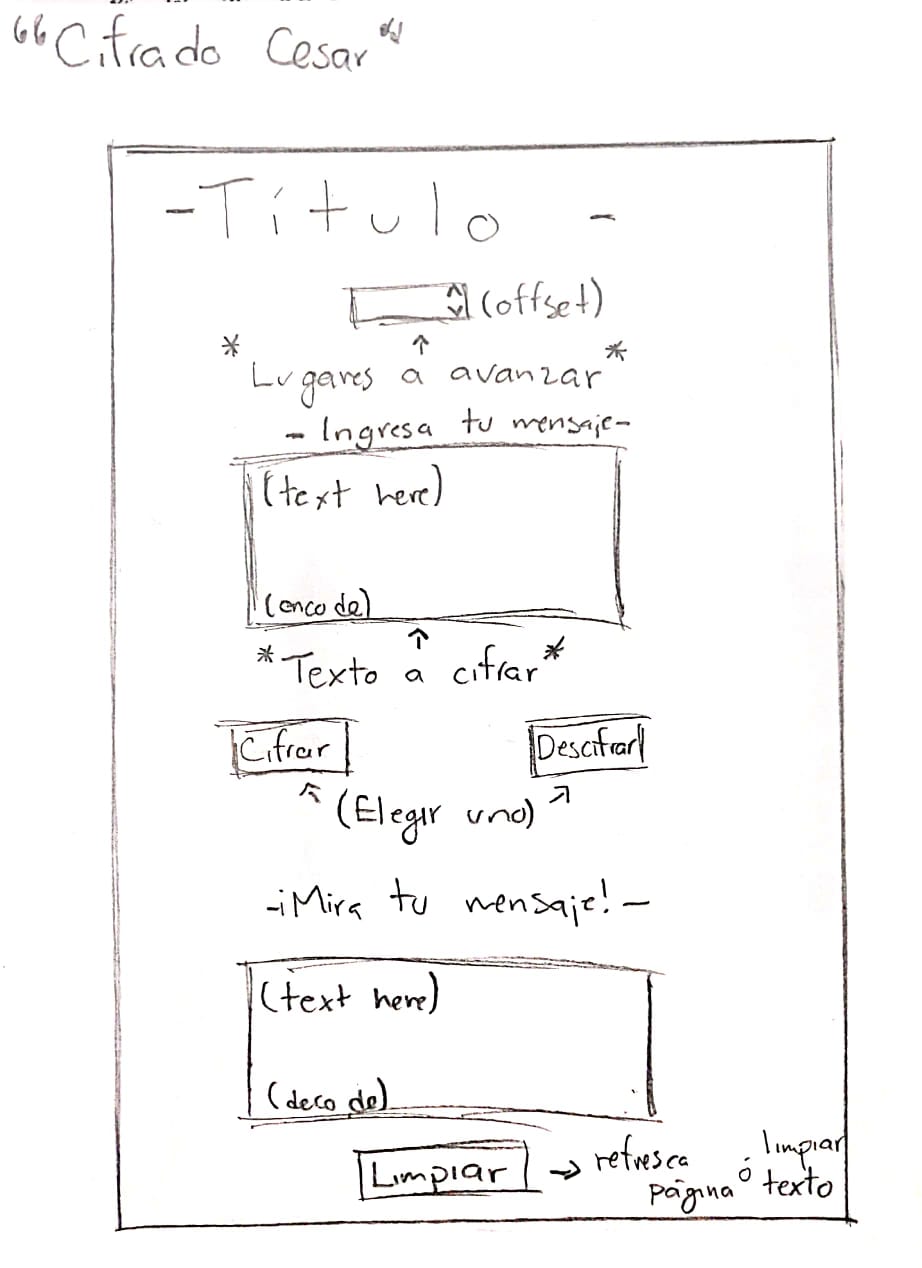 "Cifrado Cesar"
-Título -
(offset)
*Lugares a avanzar*
- Ingresa tu mensaje-
(text here)
(encode)
*Texto a cifrar*
Cifrar Descifrar
(Elegir uno)
-¡Mira tu mensaje!-
(text here)
(decode)
Limpiar → refresca página ó limpiar texto